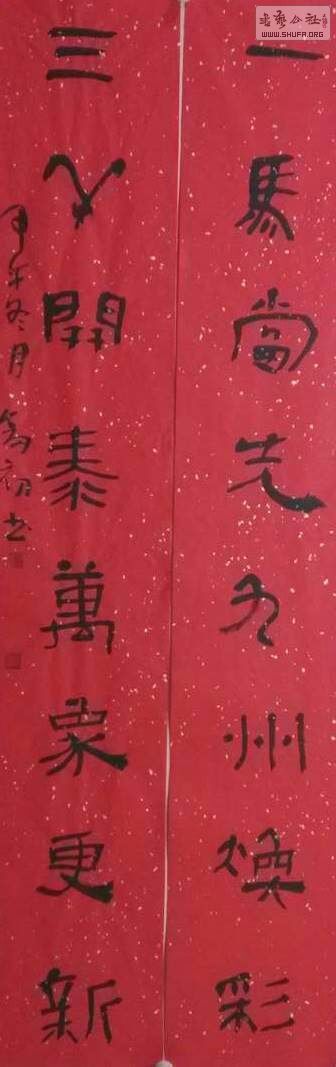 書藝公社
WWW.SHUFA.ORG
一馬當先九州煥彩
三羊開泰萬象更新
甲午冬月 初书